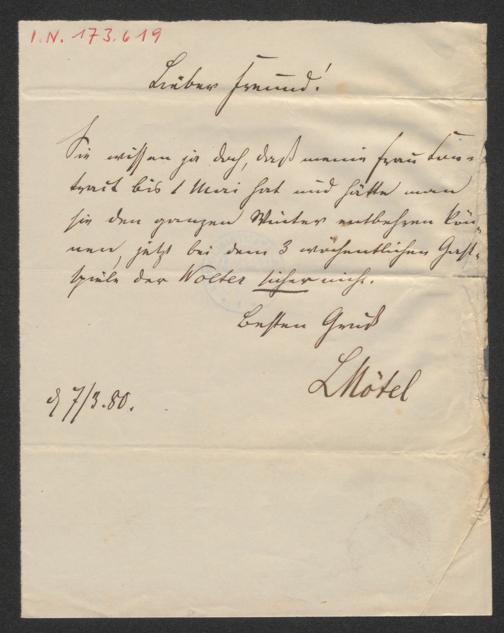 I.N. 173.619
Lieber Freund!
Sie wissen ja doch, daß meine Frau Kon-
trakt bis 1 Mai hat und hätte man
sie den ganzen Winter entbehren kön-
nen, jetzt bei dem 3 wöchentlichen Gast-
spiele der Wolter sicher nicht.
Besten Gruß
LMötel
d 7/3.80.